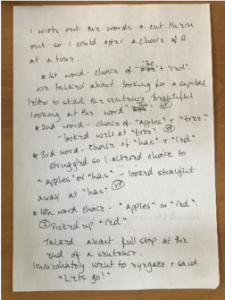 I wrote out the words & cut them
out so I could offer a choice of 2
at a time.
* 1st word - choice of "The" + "red".
We talked about looking for a capital
letter to start the sentence.
looking at the word
* 2nd word - choice of "apples" + "tree"
- looked well at "tree"
* 3rd word - choice of "has" + "red"
struggled so I altered choice to
"apples" or "has" - looked straight
away at "has" VP
* 4th word choice - "apples" or "red".
Picked up "red".
Talked about full stop at the
end of a sentence.
Immediately went to + said
"Let's go!"